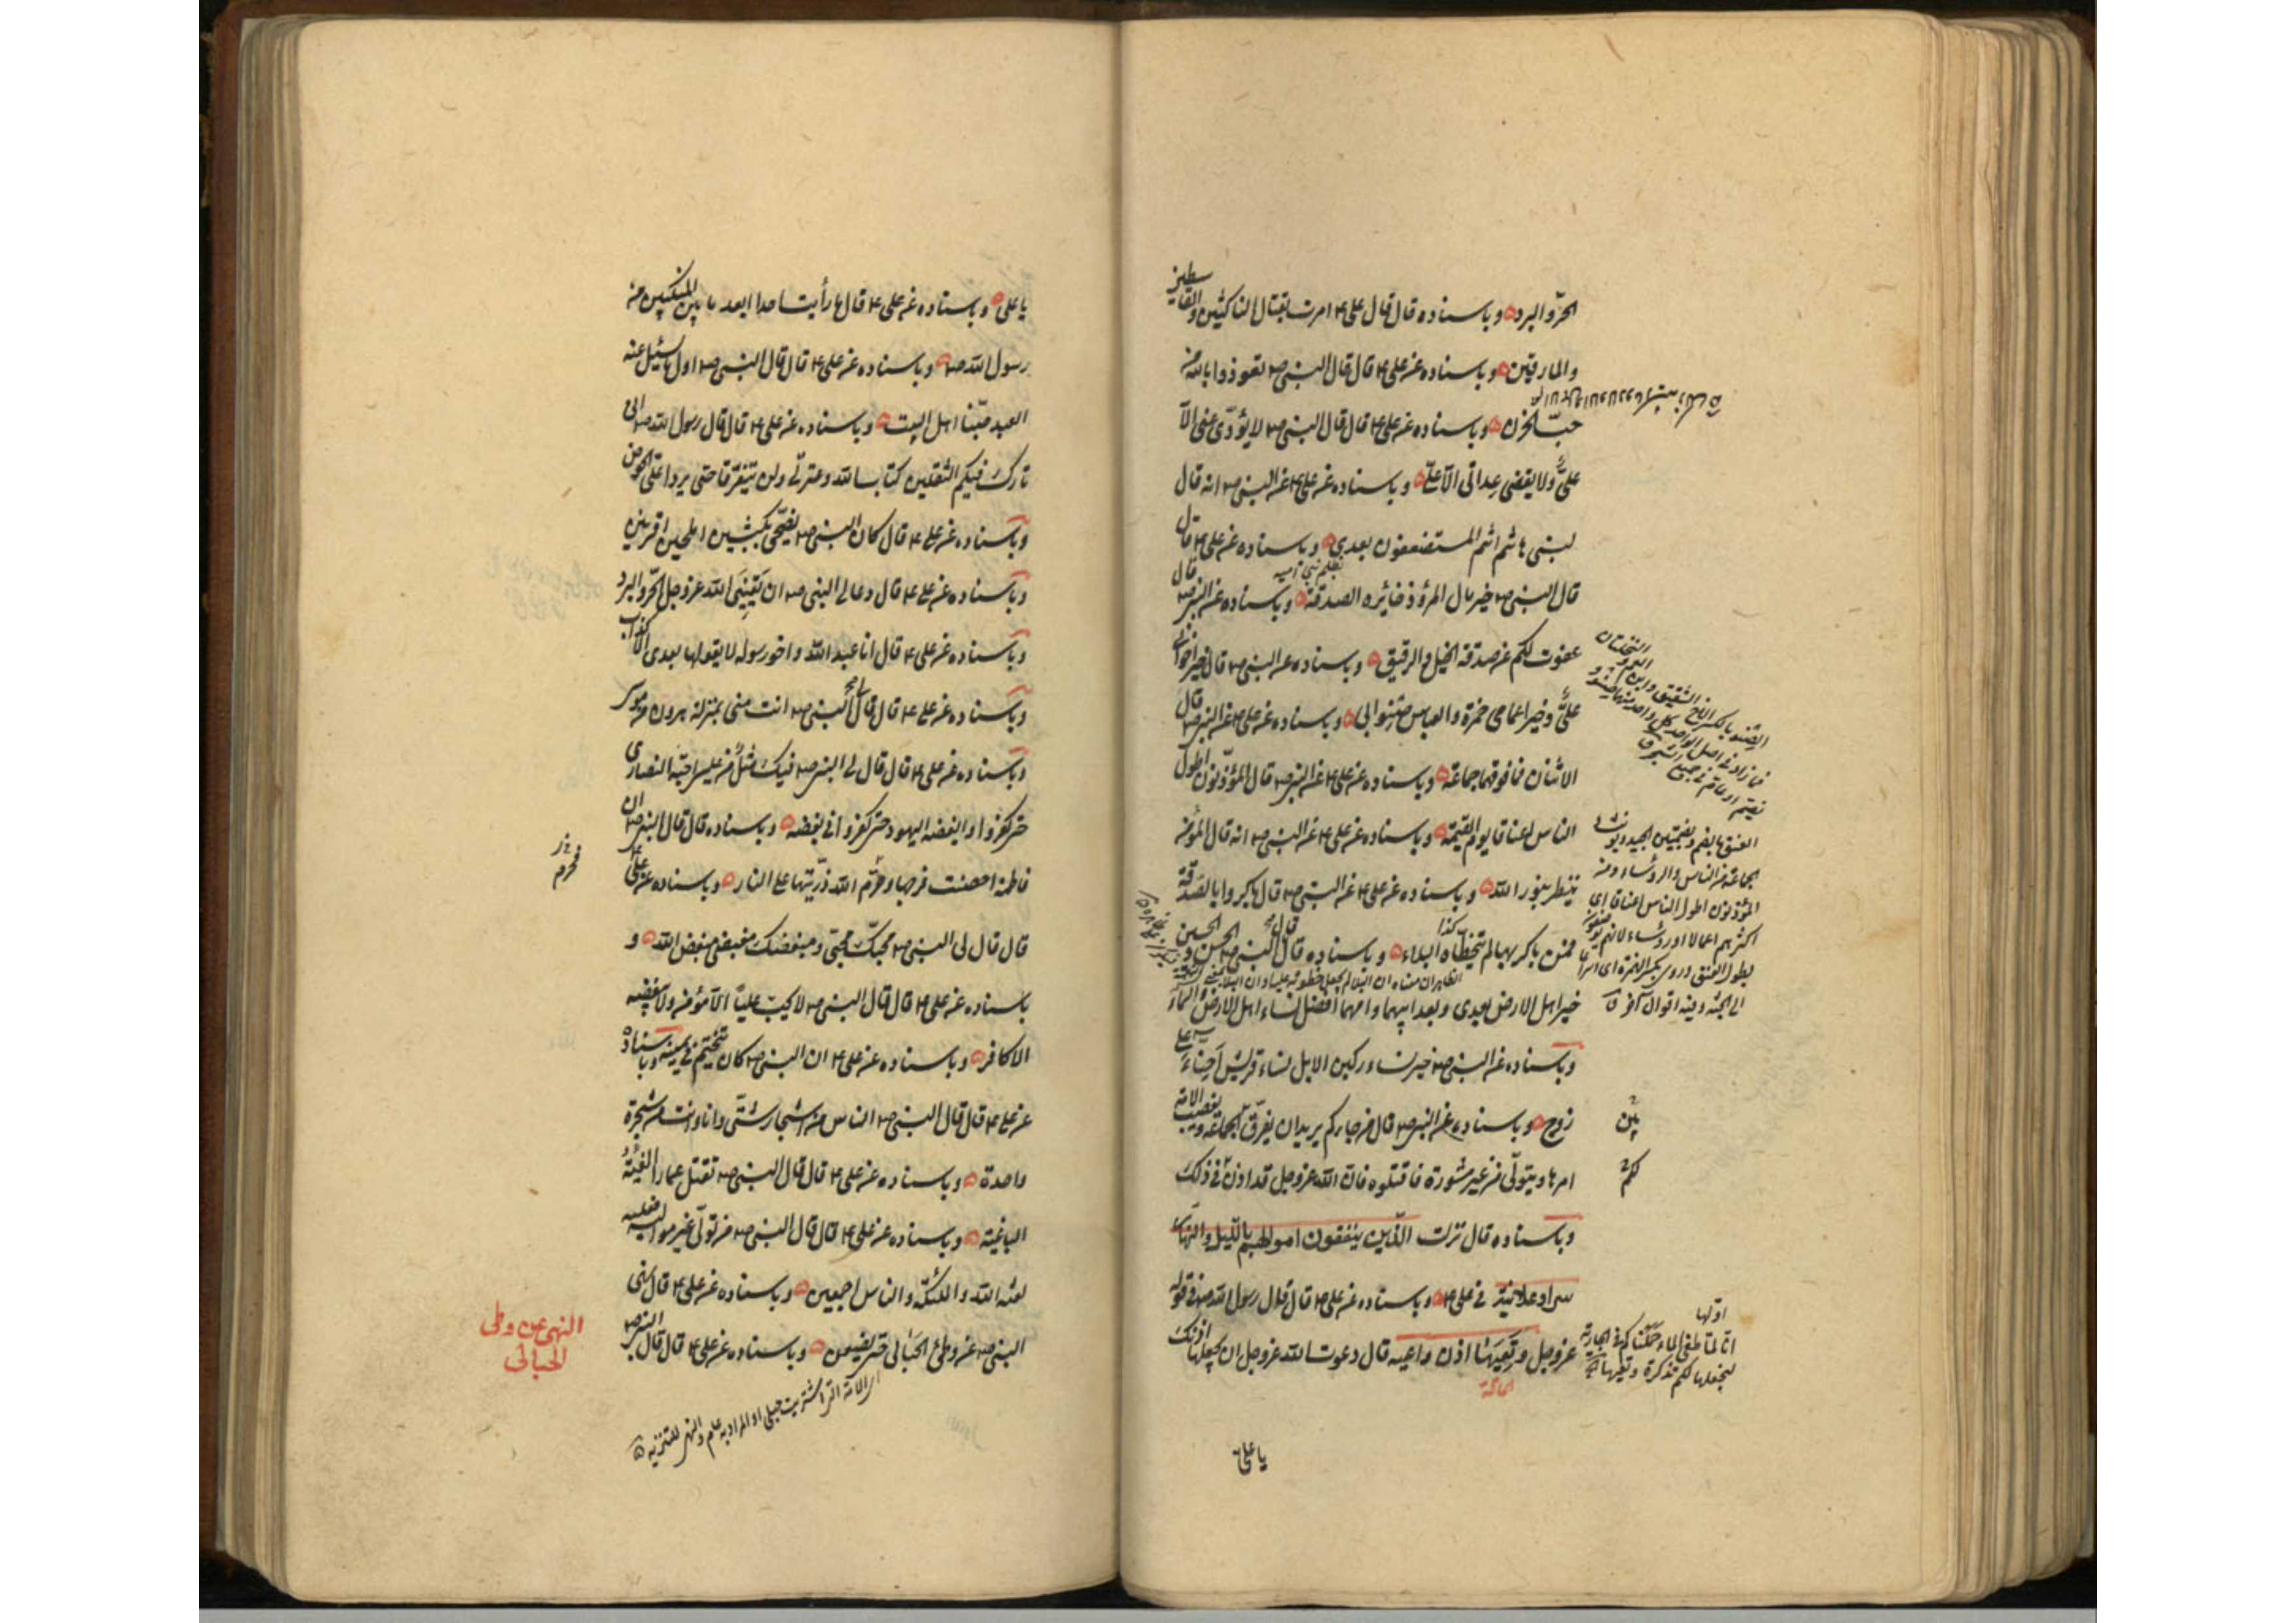 الحرّ والبرد وباسناده قال قال علي ع امرت بقتال الناكثين والقاسطين
والمارقين وباسناده عن علي ع قال قال النبي ص تعوذوا بالله من
حبّ الحزن وباسناده عن علي ع قال قال النبي ص لا يؤدّى عنى الّا
علىٌّ ولا يقضى عداتى الّا علىّ وباسناده عن على ع عن النبى ص انه قال
لبنى هاشم انتم المستضعفون بعدى وباسناده عن على ع قال
قال النبى ص خير مال المرؤ ذخائره الصدقة وباسناده عن النبى ص قال
عفوت لكم عن صدقة الخيل والرقيق وباسناده عن النبى ص قال خير اخوانى
علىٌّ وخير اعمامى حمزة والعباس صنو ابى وباسناده عن على ع عن النبى ص قال
الاثنان فما فوقهما جماعة وباسناده عن على ع عن النبى ص قال المؤذّنون اطول
الناس اعناقا يوم القيمة وباسناده عن على ع عن النبى ص انه قال المؤمن
ينظر بنور الله وباسناده عن على ع عن النبى ص قال باكروا بالصدقة
فمن باكر بها لم يتخطّاه البلاء وباسناده قال قال النبى ص الحسن والحسين
خير اهل الارض بعدى وبعد ابيهما وامهما افضل نساء اهل الارض
وباسناده عن النبى ص خير نساء ركبن الابل نساء قريش احناه على
زوج وباسناده عن النبى ص قال من جاءكم يريد ان يفرّق الجماعة ويغصب الامة
امرها ويتولّى من غير مشورة فاقتلوه فان الله عزوجل قد اذن فى ذلك
وباسناده قال نزلت الّذين ينفقون اموالهم بالّليل والنهار
سرا وعلانية فى على ع وباسناده عن على ع قال قال رسول الله ص فى قوله
عزوجل وتَعِيَهَا اذن واعيه قال دعوت الله عزوجل ان يجعلها اذنك
الحاقة
يا على
الصنو بالكسر الاخ الشقيق وابن العم
العنق بالضم وبضمتين الجيد ويؤنث
الجماعة من الناس والرؤساء ومنه
المؤذنون اطول الناس اعناقا اى
اكثرهم اعمالا او رؤساء لانهم يوصفون
بطول العنق وروى بكسر الهمزة اى اسراعا
الى الجنة وفيه اقوال آخر ق
بين
لكم
اوّلها
انّا لمّا طغى الماء حملناكم فى الجارية
لنجعلها لكم تذكرة وتعيها
يا على وباسناده عن على ع قال ما رأيت احدا ابعد ما بين المنكبين من
رسول الله ص وباسناده عن على ع قال قال النبى ص اول ما يسئل عنه
العبد حبّنا اهل البيت وباسناده عن على ع قال قال رسول الله ص انى
تارك فيكم الثقلين كتاب الله وعترتى ولن يتفرّقا حتى يردا علىّ الحوض
وباسناده عن على ع قال كان النبى ص يضحّى بكبشين املحين اقرنين
وباسناده عن على ع قال دعا لى النبى ص ان يَقِيَنِىَ الله عزوجل الحرّ والبرد
وباسناده عن على ع قال انا عبد الله واخو رسوله لا يقولها بعدى الا كذاب
وباسناده عن على ع قال قال لى النبى ص انت منى بمنزلة هرون من موسى
وباسناده عن على ع قال قال لى النبى ص فيك مَثَلٌ من عيسى احبّه النصارى
حتى كفروا وابغضه اليهود حتى كفروا فى بغضه وباسناده قال قال النبى ص ان
فاطمة احصنت فرجها وحرّم الله ذرّيتها على النار وباسناده عن على ع
فحرم
قال قال لى النبى ص محبّك محبّى ومبغضك مبغضى مبغض الله و
باسناده عن على ع قال قال النبى ص لا يحبّ عليّاً الّا مؤمن ولا يبغضه
الا كافر وباسناده عن على ع ان النبى ص كان يتختّم فى يمينه وباسناده
عن على ع قال قال النبى ص الناس من اشجار شتّى وانا وانت من شجرة
واحدة وباسناده عن على ع قال قال النبى ص تقتل عمارا الفئة
الباغية وباسناده عن على ع قال قال النبى ص من تولّى غير مواليه فعليه
لعنة الله والملئكة والناس اجمعين وباسناده عن على ع قال نهى
النبى ص عن وطئ الحَبَالى حتى يضعن وباسناده عن على ع قال قال النبى ص
النهى عن وطى
الحبالى
الامة التى اشتريت حبلى او المراد به عام والنهى للتنزيه